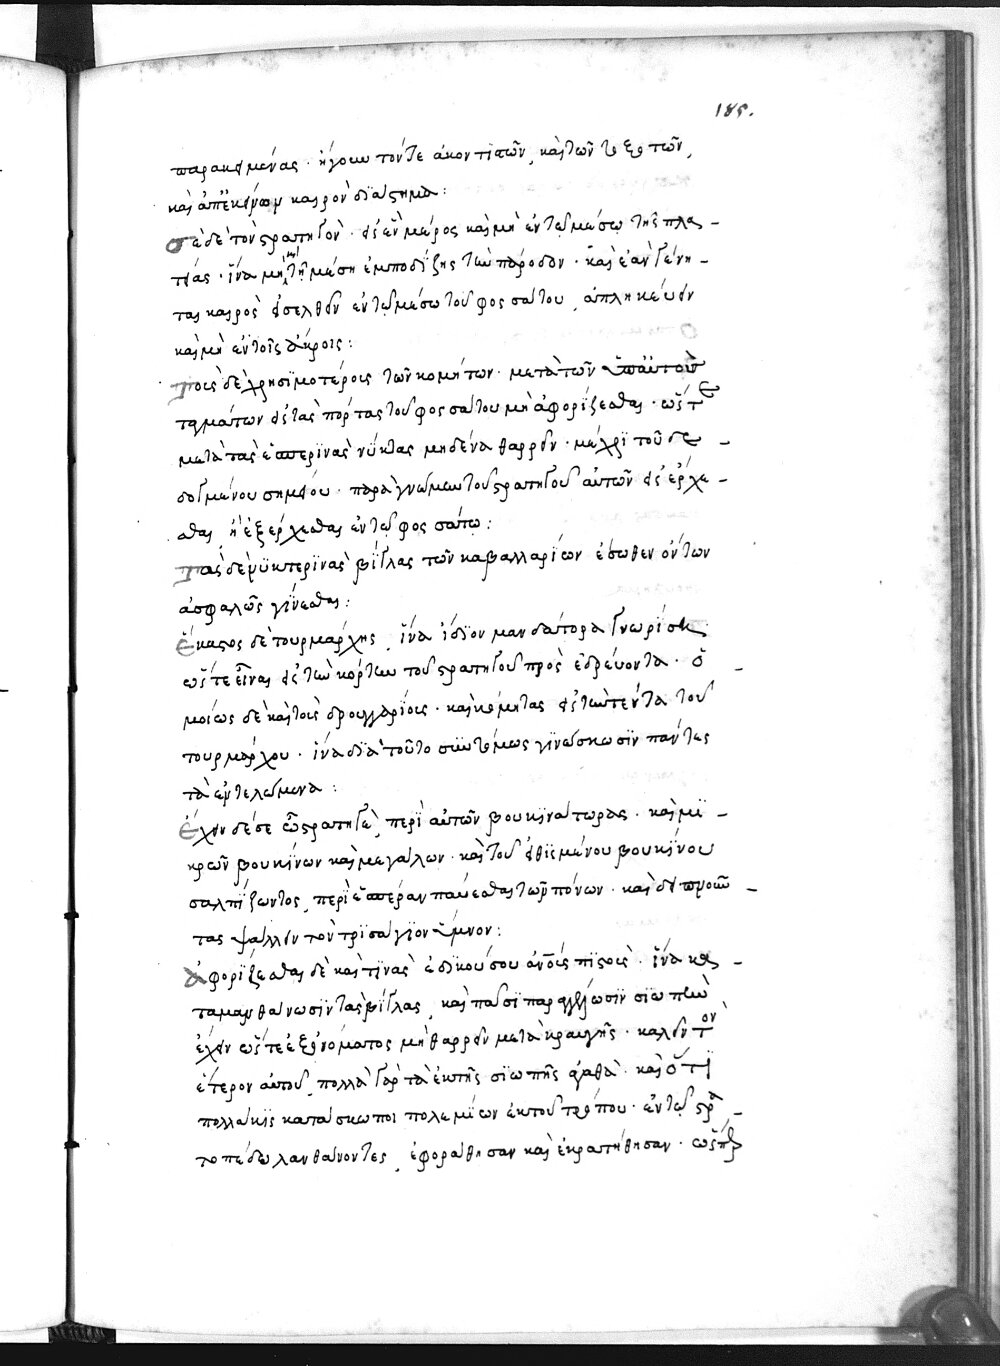 185.
παρακειμένας · ἤγουν τόν τε ἀκοντιστῶν, καὶ τῶν τοξοτῶν,
καὶ ἀπ' ἐκείνων καιρὸν διάστημα :
Σὲ δὲ τὸν στρατηγὸν · εἰς ἓν μέρος καὶ μὴ ἐν τῷ μέσῳ τῆς πλα-
τείας · ἵνα μὴ τῇ μέσῃ ἐμποδίζῃς τὴν πάροδον · καὶ ἐὰν γένη-
ται καιρὸς εἰσελθεῖν ἐν τῷ μέσω τοῦ φοσσάτου, ἀπληκεύειν
καὶ μὴ ἐν τοῖς ἄκροις :
Τοῖς δὲ χρησιμοτέροις τῶν κομήτων · μετὰ τῶν ὑπ' αὐτοὺς
ταγμάτων εἰς τὰς πόρτας τοῦ φοσσάτου μὴ ἀφορίζεσθαι · ὥστε
μετὰ τὰς ἑσπερινὰς νύκτας μηδένα θαρρεῖν · μέχρι τοῦ δε-
δομένου σημείου · παρὰ γνώμην τοῦ στρατηγοῦ αὐτῶν εἰσέρχε-
σθαι ἢ ἐξέρχεσθαι ἐν τῷ φοσσάτῳ :
Τὰς δὲ νυκτερινὰς βίγλας τῶν καβαλλαρίων ἔσωθεν ὄντων
ἀσφαλῶς γίνεσθαι :
Ἕκαστος δὲ τουρμάρχης, ἵνα ἴδιον μανδάτορα γνωρίσῃ
ὥστε εἶναι εἰς τὴν κόρτην τοῦ στρατηγοῦ πρὸς ἑδρεύοντα · ὁ-
μοίως δὲ καὶ τοὺς δρουγγαρίους · καὶ κόμητας εἰς τὴν τένταν τοῦ
τουρμάρχου · ἵνα διὰ τοῦτο συντόμως γινώσκωσιν πάντες
τὰ ἐντελλόμενα :
Ἔχειν δὲ σε ὦ στρατηγὲ, περὶ αὐτῶν βουκινάτωρας · καὶ μι-
κρῶν βουκίνων καὶ μεγάλων · καὶ τοῦ εἰθισμένου βουκίνου
σαλπίζοντος, περὶ ἑσπέραν παύεσθαι τῶν πόνων · καὶ δειπνοῦν
τας ψάλλειν τὸν τρισάγιον ὕμνον :
Ἀφορίζεσθαι δὲ καὶ τινὰς ἐδικούς σου ἀνο͂υς πιστοὺς · ἵνα κα-
ταμανθάνωσιν τὰς βίγλας, καὶ πᾶσι παραγγέλλωσιν σιωπὴν
ἔχειν ὥστε ἐξ ὀνόματος μὴ θαρρεῖν μετὰ κραυγῆς · καλεῖν τὸν
ἕτερον αὐτοῦ, πολλὰ γὰρ τὰ ἐκ τῆς σιωπῆς ἀγαθὰ · καὶ ὅτι
πολλάκις κατάσκοποι πολεμίων ἐκ τοῦ τρόπου · ἐν τῷ στρα-
τοπέδω λανθάνοντες, ἐφοράθησαν καὶ ἐκρατήθησαν · ὥσπερ